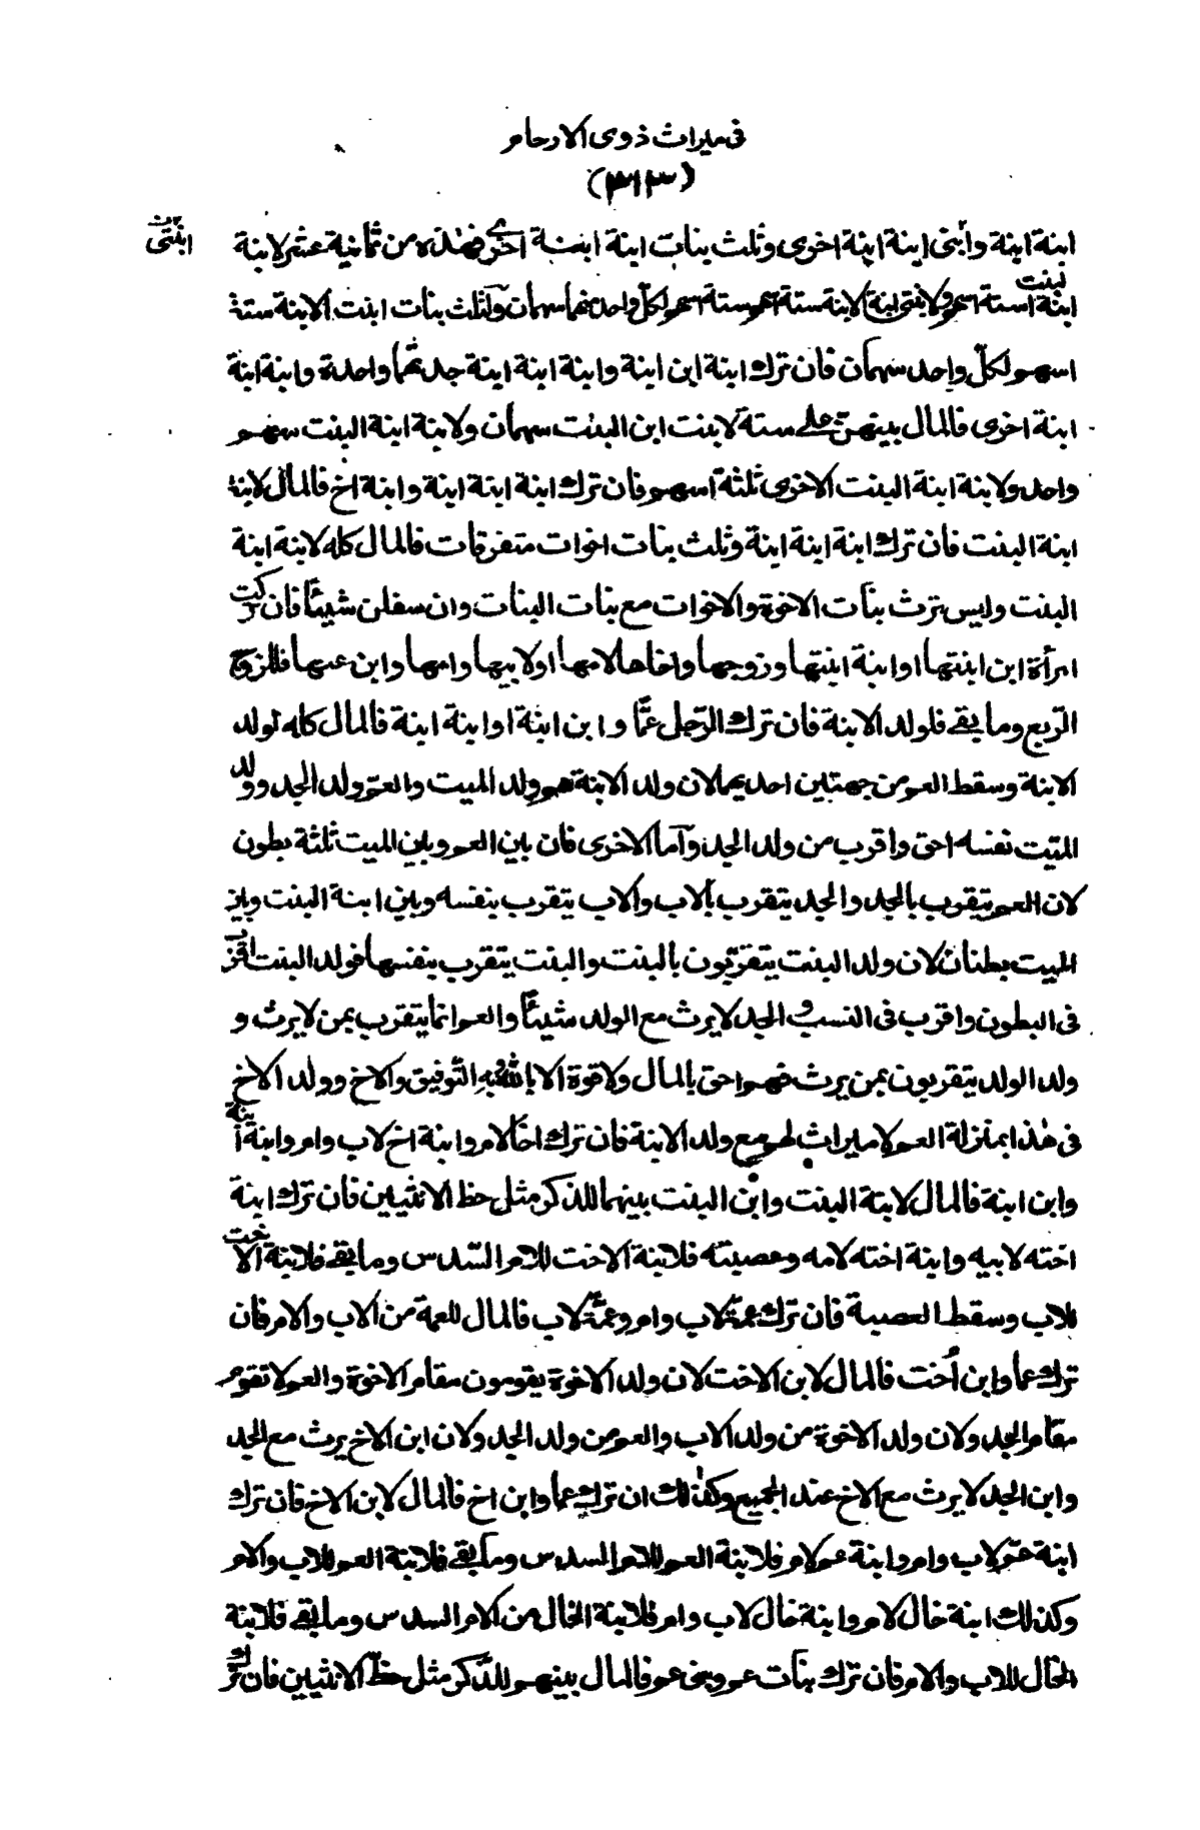 فى ميراث ذوى الارحام
(٣١٣)
ابنة ابنة وأبنى ابنة ابنة اخرى وثلث بنات ابنة ابنة اخرى فهذه من ثمانية عشر لابنة
ابنتى
ابنة ستة اسهم ولابنى ابنة الابنة ستة اسهم لكل واحد منهما سهمان ولثلث بنات ابنت الابنة ستة
اسهم لكلّ واحد سهمان فان ترك ابنة ابن ابنة وابنة ابنة ابنة جدتهما واحدة وابنة ابنة
ابنة اخرى فالمال بينهنّ على ستة لابنت ابن البنت سهمان ولابنة ابنة البنت سهم
واحد ولابنة ابنة البنت الاخرى ثلثة اسهم فان ترك ابنة ابنة ابنة وابنة اخ فالمال لابنة
ابنة البنت فان ترك ابنة ابنة ابنة وثلث بنات اخوات متفرقات فالمال كله لابنة ابنة
البنت وليس ترث بنات الاخوة والاخوات مع بنات البنات وان سفلن شيئًا فان تركت
امرأة ابن ابنتها او ابنة ابنتها وزوجها واخاها لامها او لابيها وامها وابن عمها فللزوج
الرّبع وما بقى فلولد الابنة فان ترك الرّجل عمًّا وابن ابنة او ابنة ابنة فالمال كله لولد
الابنة وسقط العم من جهتين احديهما لان ولد الابنة هو ولد الميت والعمّ ولد الجد وولد
الميّت نفسه احق واقرب من ولد الجد وأما الاخرى فان بين العم وبين الميت ثلثة بطون
لان العم يتقرب بالجد والجد يتقرب بالاب والاب يتقرب بنفسه وبين ابنة البنت وبين
الميت بطنان لان ولد البنت يتقرّبون بالبنت والبنت يتقرب بنفسها فولد البنت اقرب
فى البطون واقرب فى النسب والجد لا يرث مع الولد شيئًا والعم انما يتقرب بمن لا يرث و
ولد الولد يتقربون بمن يرث فهم احق بالمال ولا قوة الا بالله وبه التّوفيق والاخ وولد الاخ
فى هذا بمنزلة العم لا ميراث لهم مع ولد الابنة فان ترك اخًا لام وابنة اخ لاب وام وابنة ابنة
وابن ابنة فالمال لابنة البنت وابن البنت بينهما للذكر مثل حظ الانثيين فان ترك ابنة
اخته لابيه وابنة اخته لامه وعصبته فلابنة الاخت للام السّدس وما بقى فلابنة الاخت
للاب وسقط العصبة فان ترك عمة لاب وام وعمّة لاب فالمال للعمة من الاب والام فان
ترك عما وابن أخت فالمال لابن الاخت لان ولد الاخوة يقومون مقام الاخوة والعم لا تقوم
مقام الجد ولان ولد الاخوة من ولد الاب والعم من ولد الجد ولان ابن الاخ يرث مع الجد
وابن الجد لا يرث مع الاخ عند الجميع وكذلك ان ترك عما وابن اخ فالمال لابن الاخ فان ترك
ابنة عمّ لاب وام وابنة عم لام فلابنة العم للام السدس وما بقى فلابنة العم للاب والام
وكذلك ابنة خال لام وابنة خال لاب وام فلابنة الخال من الام السدس وما بقى فلابنة
الخال للاب والام فان ترك بنات عم وبنى عم فالمال بينهم للذّكر مثل حظّ الانثيين فان ترك